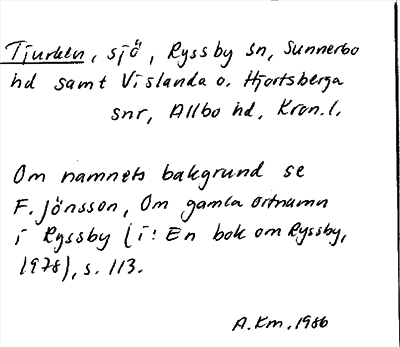 Tjurken, sjö, Ryssby sn, Sunnerbo
hd samt Vislanda o. Hjortsberga
snr, Allbo hd, Kron.l.
Om namnets bakgrund se
F. Jönsson, Om gamla ortnamn
i Ryssby (i: En bok om Ryssby,
1978), s. 113.
A.Km. 1986